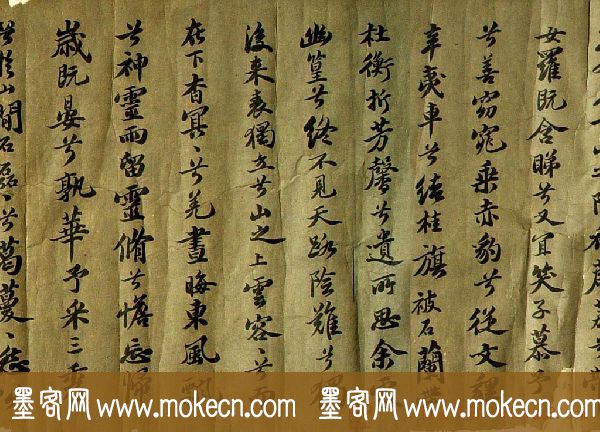 女羅既含睇兮又宜笑子慕予
兮善窈窕乘赤豹兮從文
辛夷車兮結桂旗被石蘭
杜衡折芳馨兮遺所思余
幽篁兮終不見天路險難兮
後来表獨立兮山之上雲容〻兮
在下杳冥〻兮羌晝晦東風
兮神靈雨留靈脩兮憺忘
歲既晏兮孰華予采三
於山間石磊〻兮葛蔓〻怨
墨客网 www.mokecn.com 墨客网 www.mokecn.com